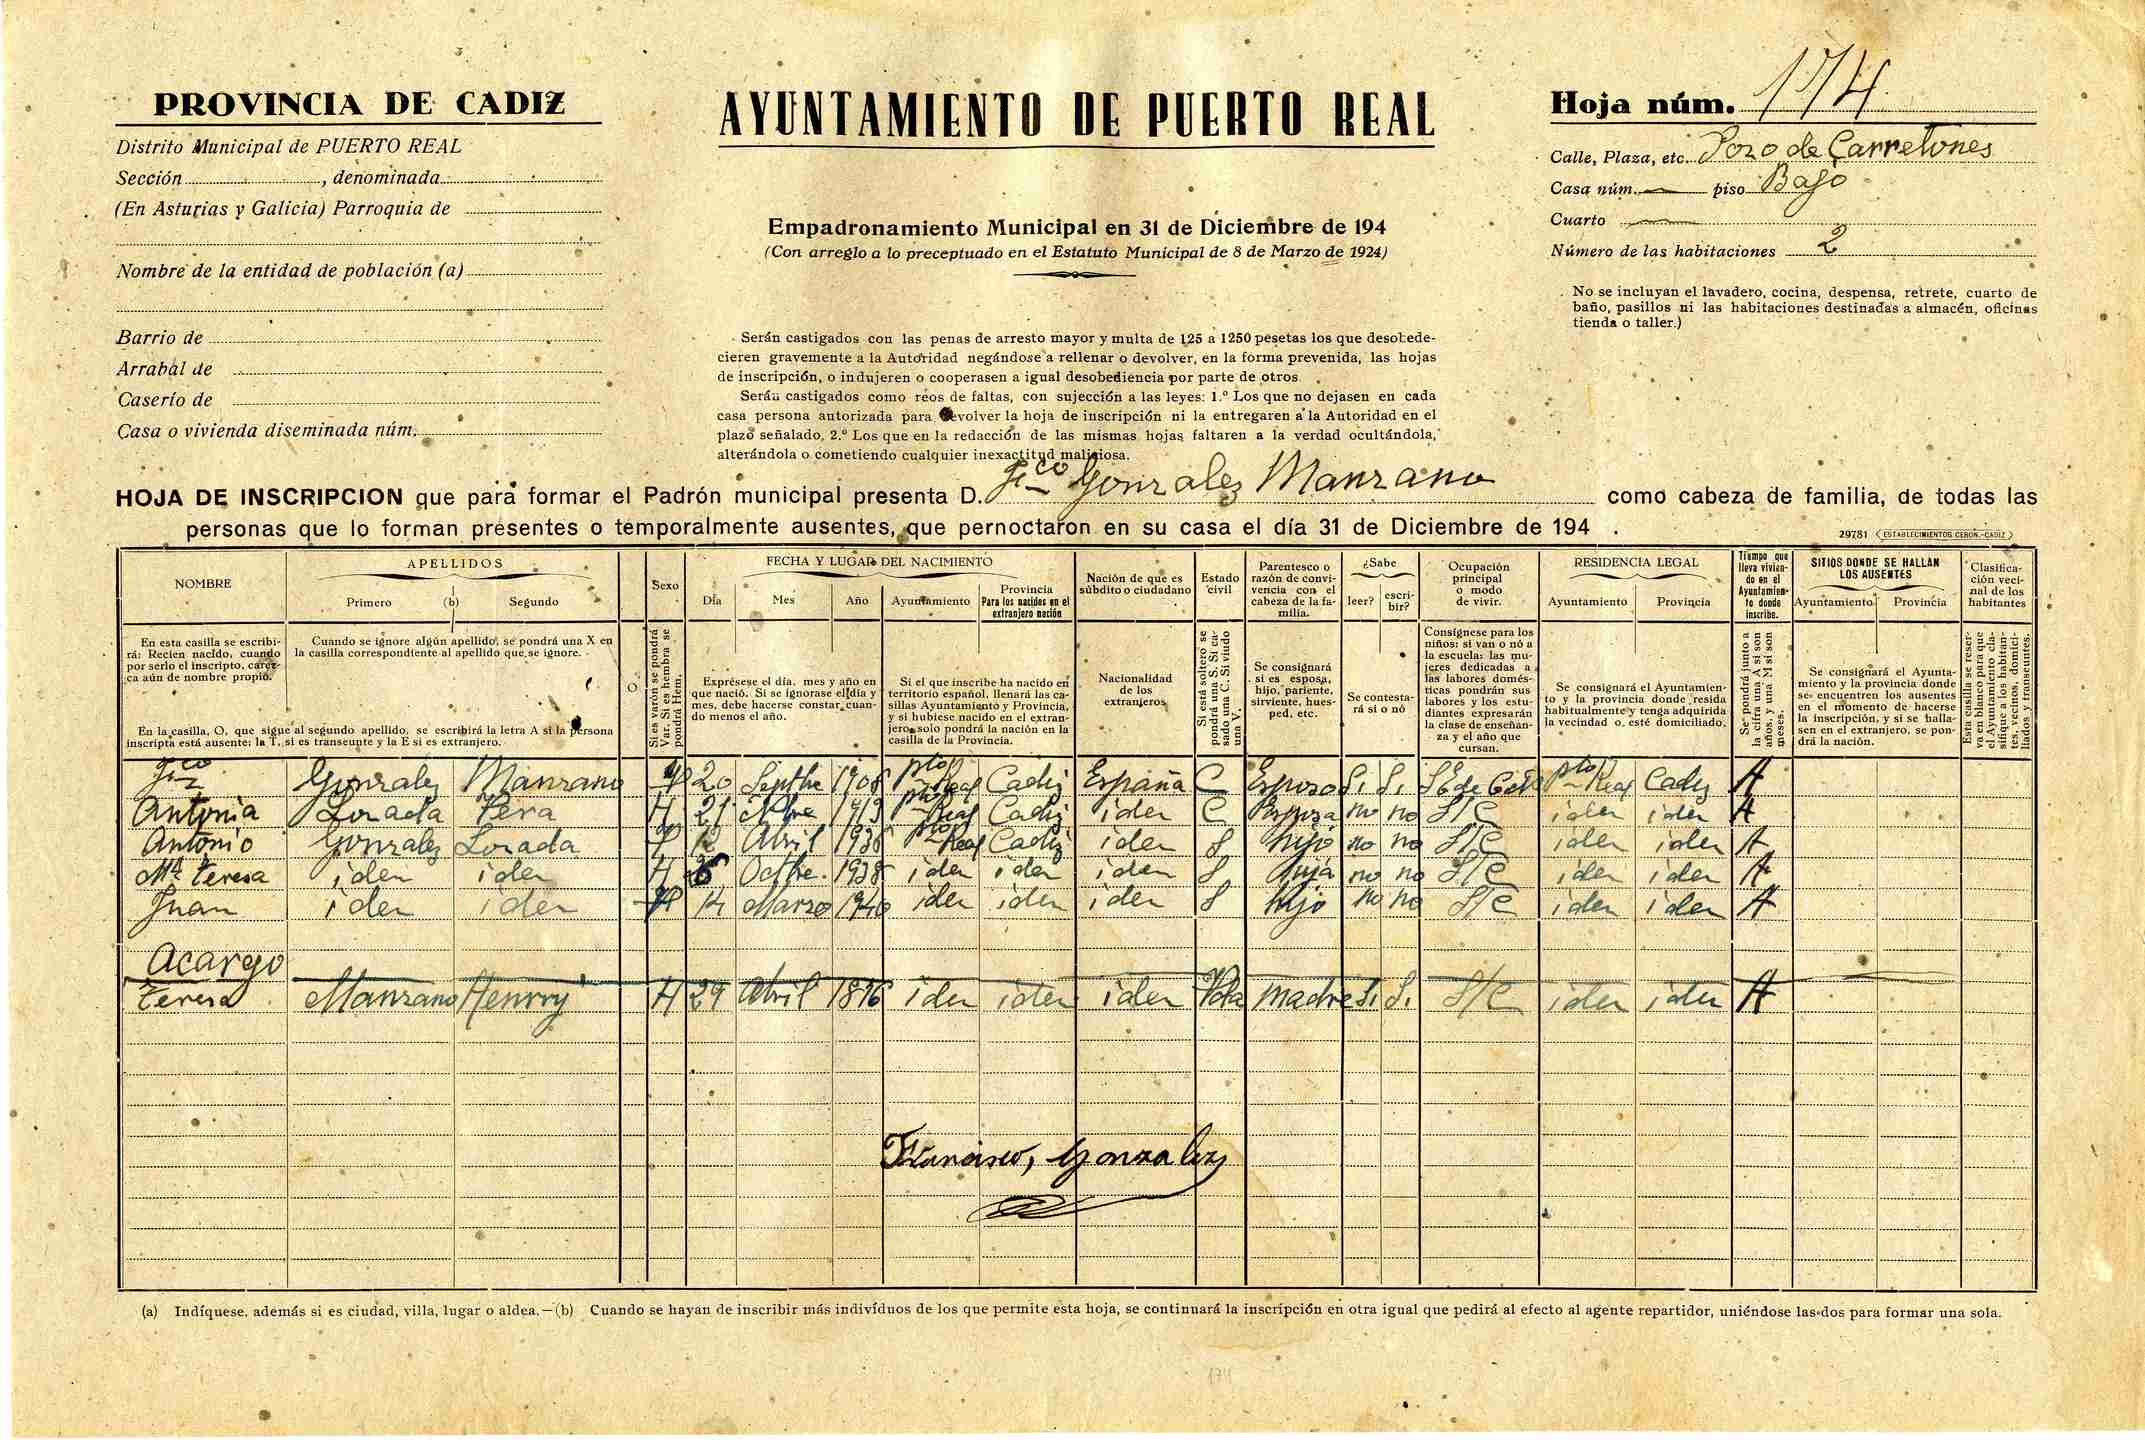 PROVINCIA DE CADIZ
Distrito Municipal de PUERTO REAL
Sección , denominada
(En Asturias y Galicia) Parroquia de
Nombre de la entidad de población (a)
Barrio de
Arrabal de
Caserío de
Casa o vivienda diseminada núm.
AYUNTAMIENTO DE PUERTO REAL
Empadronamiento Municipal en 31 de Diciembre de 194
(Con arreglo a lo preceptuado en el Estatuto Municipal de 8 de Marzo de 1924)
Serán castigados con las penas de arresto mayor y multa de 125 a 1250 pesetas los que desobede-
cieren gravemente a la Autoridad negándose a rellenar o devolver, en la forma prevenida, las hojas
de inscripción, o indujeren o cooperasen a igual desobediencia por parte de otros.
Serán castigados como reos de faltas, con sujección a las leyes: 1.º Los que no dejasen en cada
casa persona autorizada para devolver la hoja de inscripción ni la entregaren a la Autoridad en el
plazo señalado, 2.º Los que en la redacción de las mismas hojas faltaren a la verdad ocultándola,
alterándola o cometiendo cualquier inexactitud maliciosa.
Hoja núm. 174
Calle, Plaza, etc. Pozo de Carretones
Casa núm. piso Bajo
Cuarto
Número de las habitaciones 2
No se incluyan el lavadero, cocina, despensa, retrete, cuarto de
baño, pasillos ni las habitaciones destinadas a almacén, oficinas
tienda o taller.)
HOJA DE INSCRIPCION que para formar el Padrón municipal presenta D. Fco Gonzalez Manzano como cabeza de familia, de todas las
personas que lo forman presentes o temporalmente ausentes, que pernoctaron en su casa el día 31 de Diciembre de 194 .
29781 ESTABLECIMIENTOS CERON.-CADIZ
NOMBRE
En esta casilla se escribi-
rá: Recien nacido, cuando
por serlo el inscripto, carez-
ca aún de nombre propio.
APELLIDOS
Primero (b) Segundo
Cuando se ignore algún apellido, se pondrá una X en
la casilla correspondiente al apellido que se ignore.
En la casilla, O, que sigue al segundo apellido, se escribirá la letra A si la persona
inscripta está ausente; la T, si es transeunte y la E si es extranjero.
O
Sexo
Si es varón se pondrá
Var. Si es hembra se
pondrá Hem.
FECHA Y LUGAR DEL NACIMIENTO
Día Mes Año Ayuntamiento
Provincia
Para los nacidos en el
extranjero nación
Exprésese el día, mes y año en
que nació. Si se ignorase el día y
mes, debe hacerse constar cuan-
do menos el año.
Si el que inscribe ha nacido en
territorio español, llenará las ca-
sillas Ayuntamiento y Provincia,
y si hubiese nacido en el extran-
jero, solo pondrá la nación en la
casilla de la Provincia.
Nación de que es
súbdito o ciudadano
Nacionalidad
de los
extranjeros
Estado
civil
Si está soltero se
pondrá una S. Si ca-
sado una C. Si viudo
una V.
Parentesco o
razón de convi-
vencia con el
cabeza de la fa-
milia.
Se consignará
si es esposa,
hijo, pariente,
sirviente, hues-
ped, etc.
¿Sabe
leer? escri-
bir?
Se contesta-
rá si o nó
Ocupación
principal
o modo
de vivir.
Consígnese para los
niños: si van o nó a
la escuela: las mu-
jeres dedicadas a
las labores domés-
ticas pondrán sus
labores y los estu-
diantes expresarán
la clase de enseñan-
za y el año que
cursan.
RESIDENCIA LEGAL
Ayuntamiento Provincia
Se consignará el Ayuntamien-
to y la provincia donde resida
habitualmente y tenga adquirida
la vecindad o, esté domiciliado.
Tiempo que
lleva vivien-
do en el
Ayuntamien-
to donde
inscribe.
Se pondrá junto a
la cifra una A si son
años, y una M si son
meses.
SITIOS DONDE SE HALLAN
LOS AUSENTES
Ayuntamiento Provincia
Se consignará el Ayunta-
miento y la provincia donde
se encuentren los ausentes
en el momento de hacerse
la inscripción, y si se halla-
sen en el extranjero, se pon-
drá la nación.
Clasifica-
ción veci-
nal de los
habitantes
Esta casilla se reser-
va en blanco para que
el Ayuntamiento cla-
sifique a los habitan-
tes, vecinos, domici-
liados y transeuntes.
Fco Gonzalez Manzano 20 Septbre 1908 Pto Real Cadiz España C Esposo Si Si Pto Real Cadiz A
Antonia Lozada Pera H 21 1913 Pto Real Cadiz iden C Esposa no no S/C iden iden A
Antonio Gonzalez Lozada 12 Abril 1936 Pto Real Cadiz iden S hijo no no S/C iden iden A
Mª Teresa iden iden H 6 Octbre. 1938 iden iden iden S hija no no S/C iden iden A
Juan iden iden 14 Marzo 1940 iden iden iden S hijo no no S/C iden iden A
Acargo
Teresa Manzano Henrry H 29 Abril 1876 iden iden iden Vda madre Si Si S/C iden iden A
Francisco, Gonzalez
(a) Indíquese, además si es ciudad, villa, lugar o aldea.—(b) Cuando se hayan de inscribir más individuos de los que permite esta hoja, se continuará la inscripción en otra igual que pedirá al efecto al agente repartidor, uniéndose las dos para formar una sola.
174